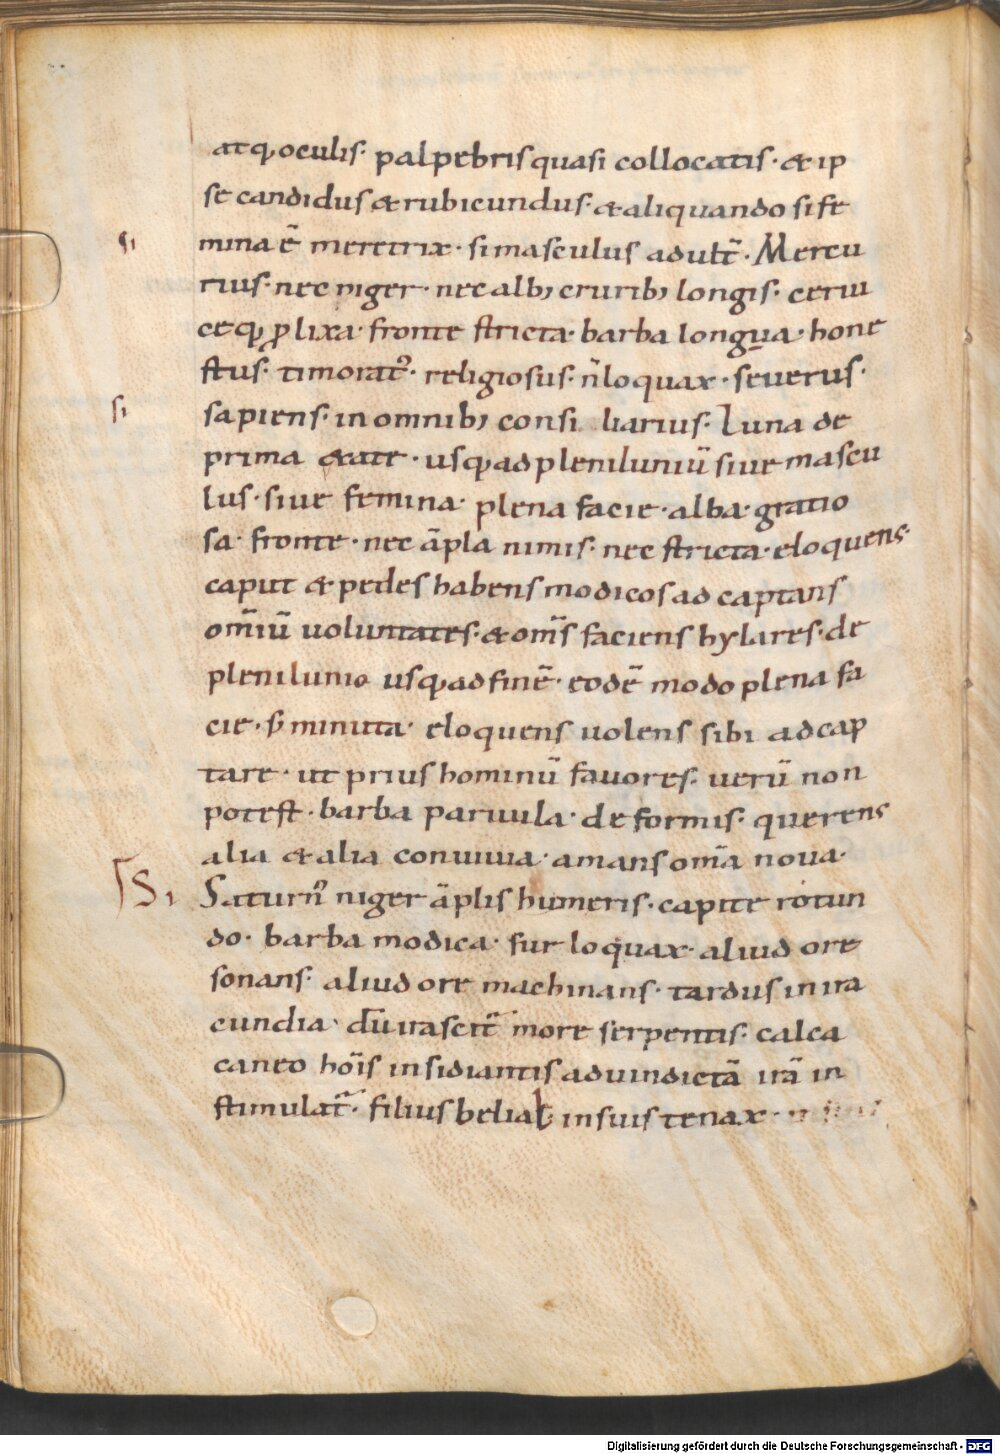 atq; oculis· palpebris quasi collocatis· & ip
se candidus & rubicundus· & aliquando si fe
si mina ē meretrix· si masculus adult̄· Mercu
rius· nec niger· nec alb; crurib; longis· cerui
ceq; ꝓlixa· fronte stricta· barba longua· hone
stus· timorat᾽· religiosus· n̄ loquax· seuerus·
si sapiens· in omnib; consiliarius· Luna de
prima &ate· usq; ad pleniluniū siue mascu
lus· siue femina· plena facie· alba· gratio
sa· fronte· nec āpla nimis· nec stricta· eloquens·
caput & pedes habens modicos ad captans
om̄iū uoluntates· & om̄s faciens hylares· de
plenilunio usq; ad finē· eodē modo plena fa
cie· s; minuta· eloquens uolens sibi ad cap
tare· ut prius hominū fauores· uerū non
potest· barba paruula· deformis· querens
alia & alia conuiuia· amans om̄a noua·
Si Saturn᾽ niger āplis humeris· capite rotun
do· barba modica· fur loquax· aliud ore
sonans· aliud ore machinans· tardus in ira
cundia· dū irascit̄ more serpentis· calca
caneo hōis insidiantis ad uindictā irā in
stimulat̄· filius belial in suis tenax·
Digitalisierung gefördert durch die Deutsche Forschungsgemeinschaft - DFG